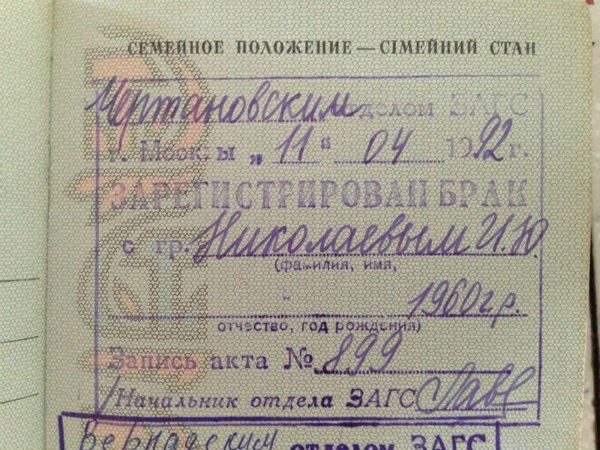 СЕМЕЙНОЕ ПОЛОЖЕНИЕ — СІМЕЙНИЙ СТАН
Чертановским отделом ЗАГС
г. Москвы „11“ 04 1992 г.
ЗАРЕГИСТРИРОВАН БРАК
с гр. Николаевым И. Ю.
(фамилия, имя,
1960 г.р.
отчество, год рождения)
Запись акта № 899
Начальник отдела ЗАГС
Вернадским отделом ЗАГС